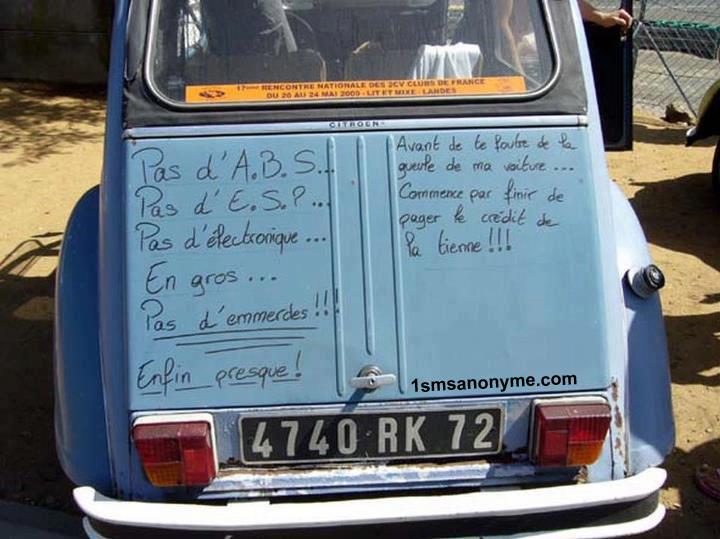 17ème RENCONTRE NATIONALE DES 2CV CLUBS DE FRANCE
DU 20 AU 24 MAI 2009 - LIT ET MIXE - LANDES
CITROËN
Pas d'A.B.S...
Pas d'E.S.P...
Pas d'électronique...
En gros...
Pas d'emmerdes!!!
Enfin presque!
Avant de te foutre de la
gueule de ma voiture...
Commence par finir de
payer le crédit de
la tienne!!!
1smsanonyme.com
4740 RK 72